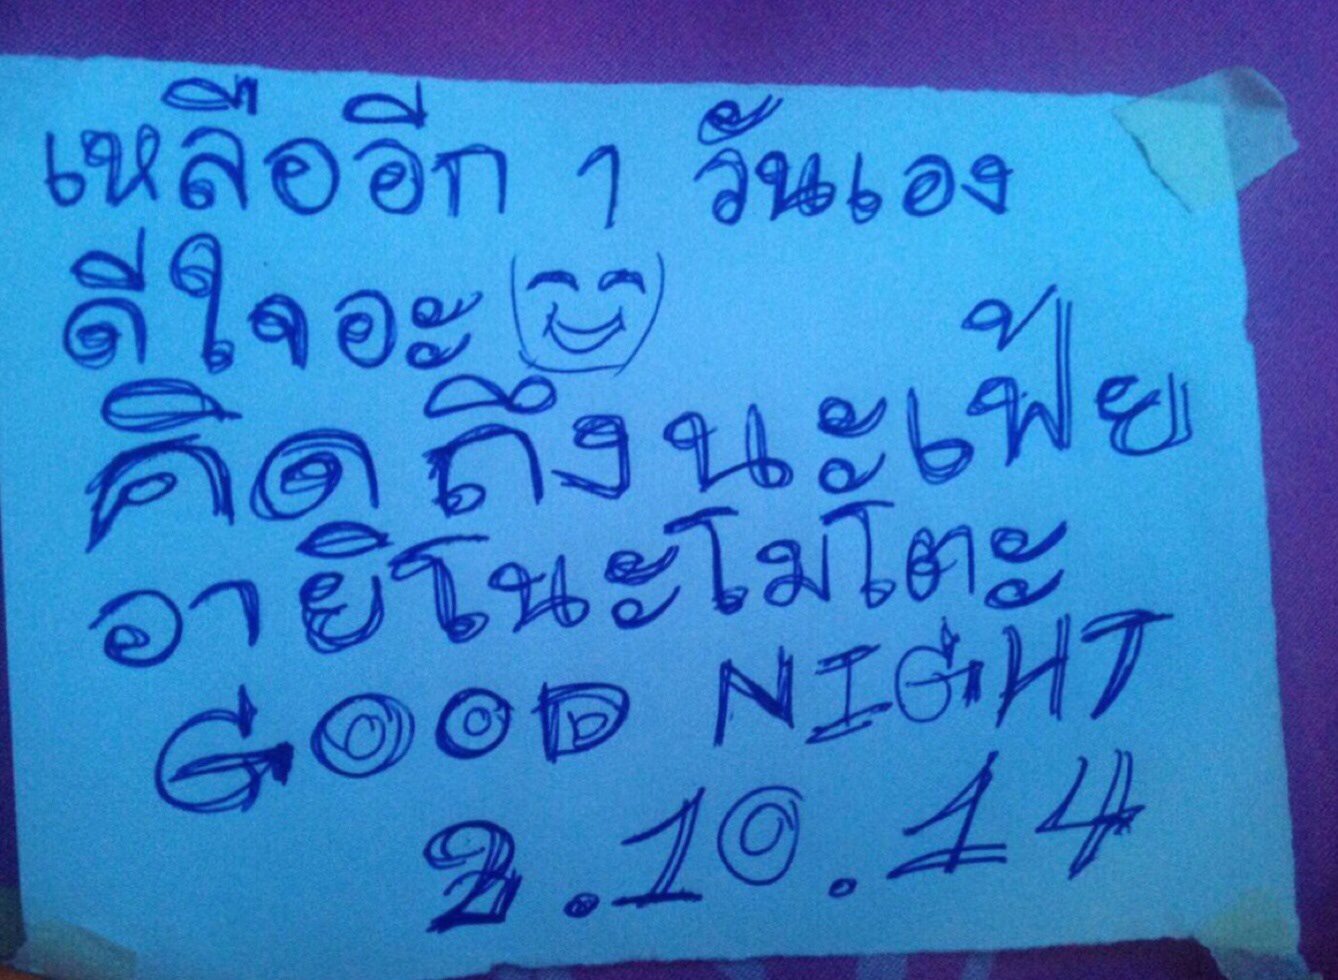 เหลืออีก 1 วันเอง
ดีใจอะ
คิดถึงนะเฟ้ย
อายิโนะโมโตะ
GOOD NIGHT
2.10.14